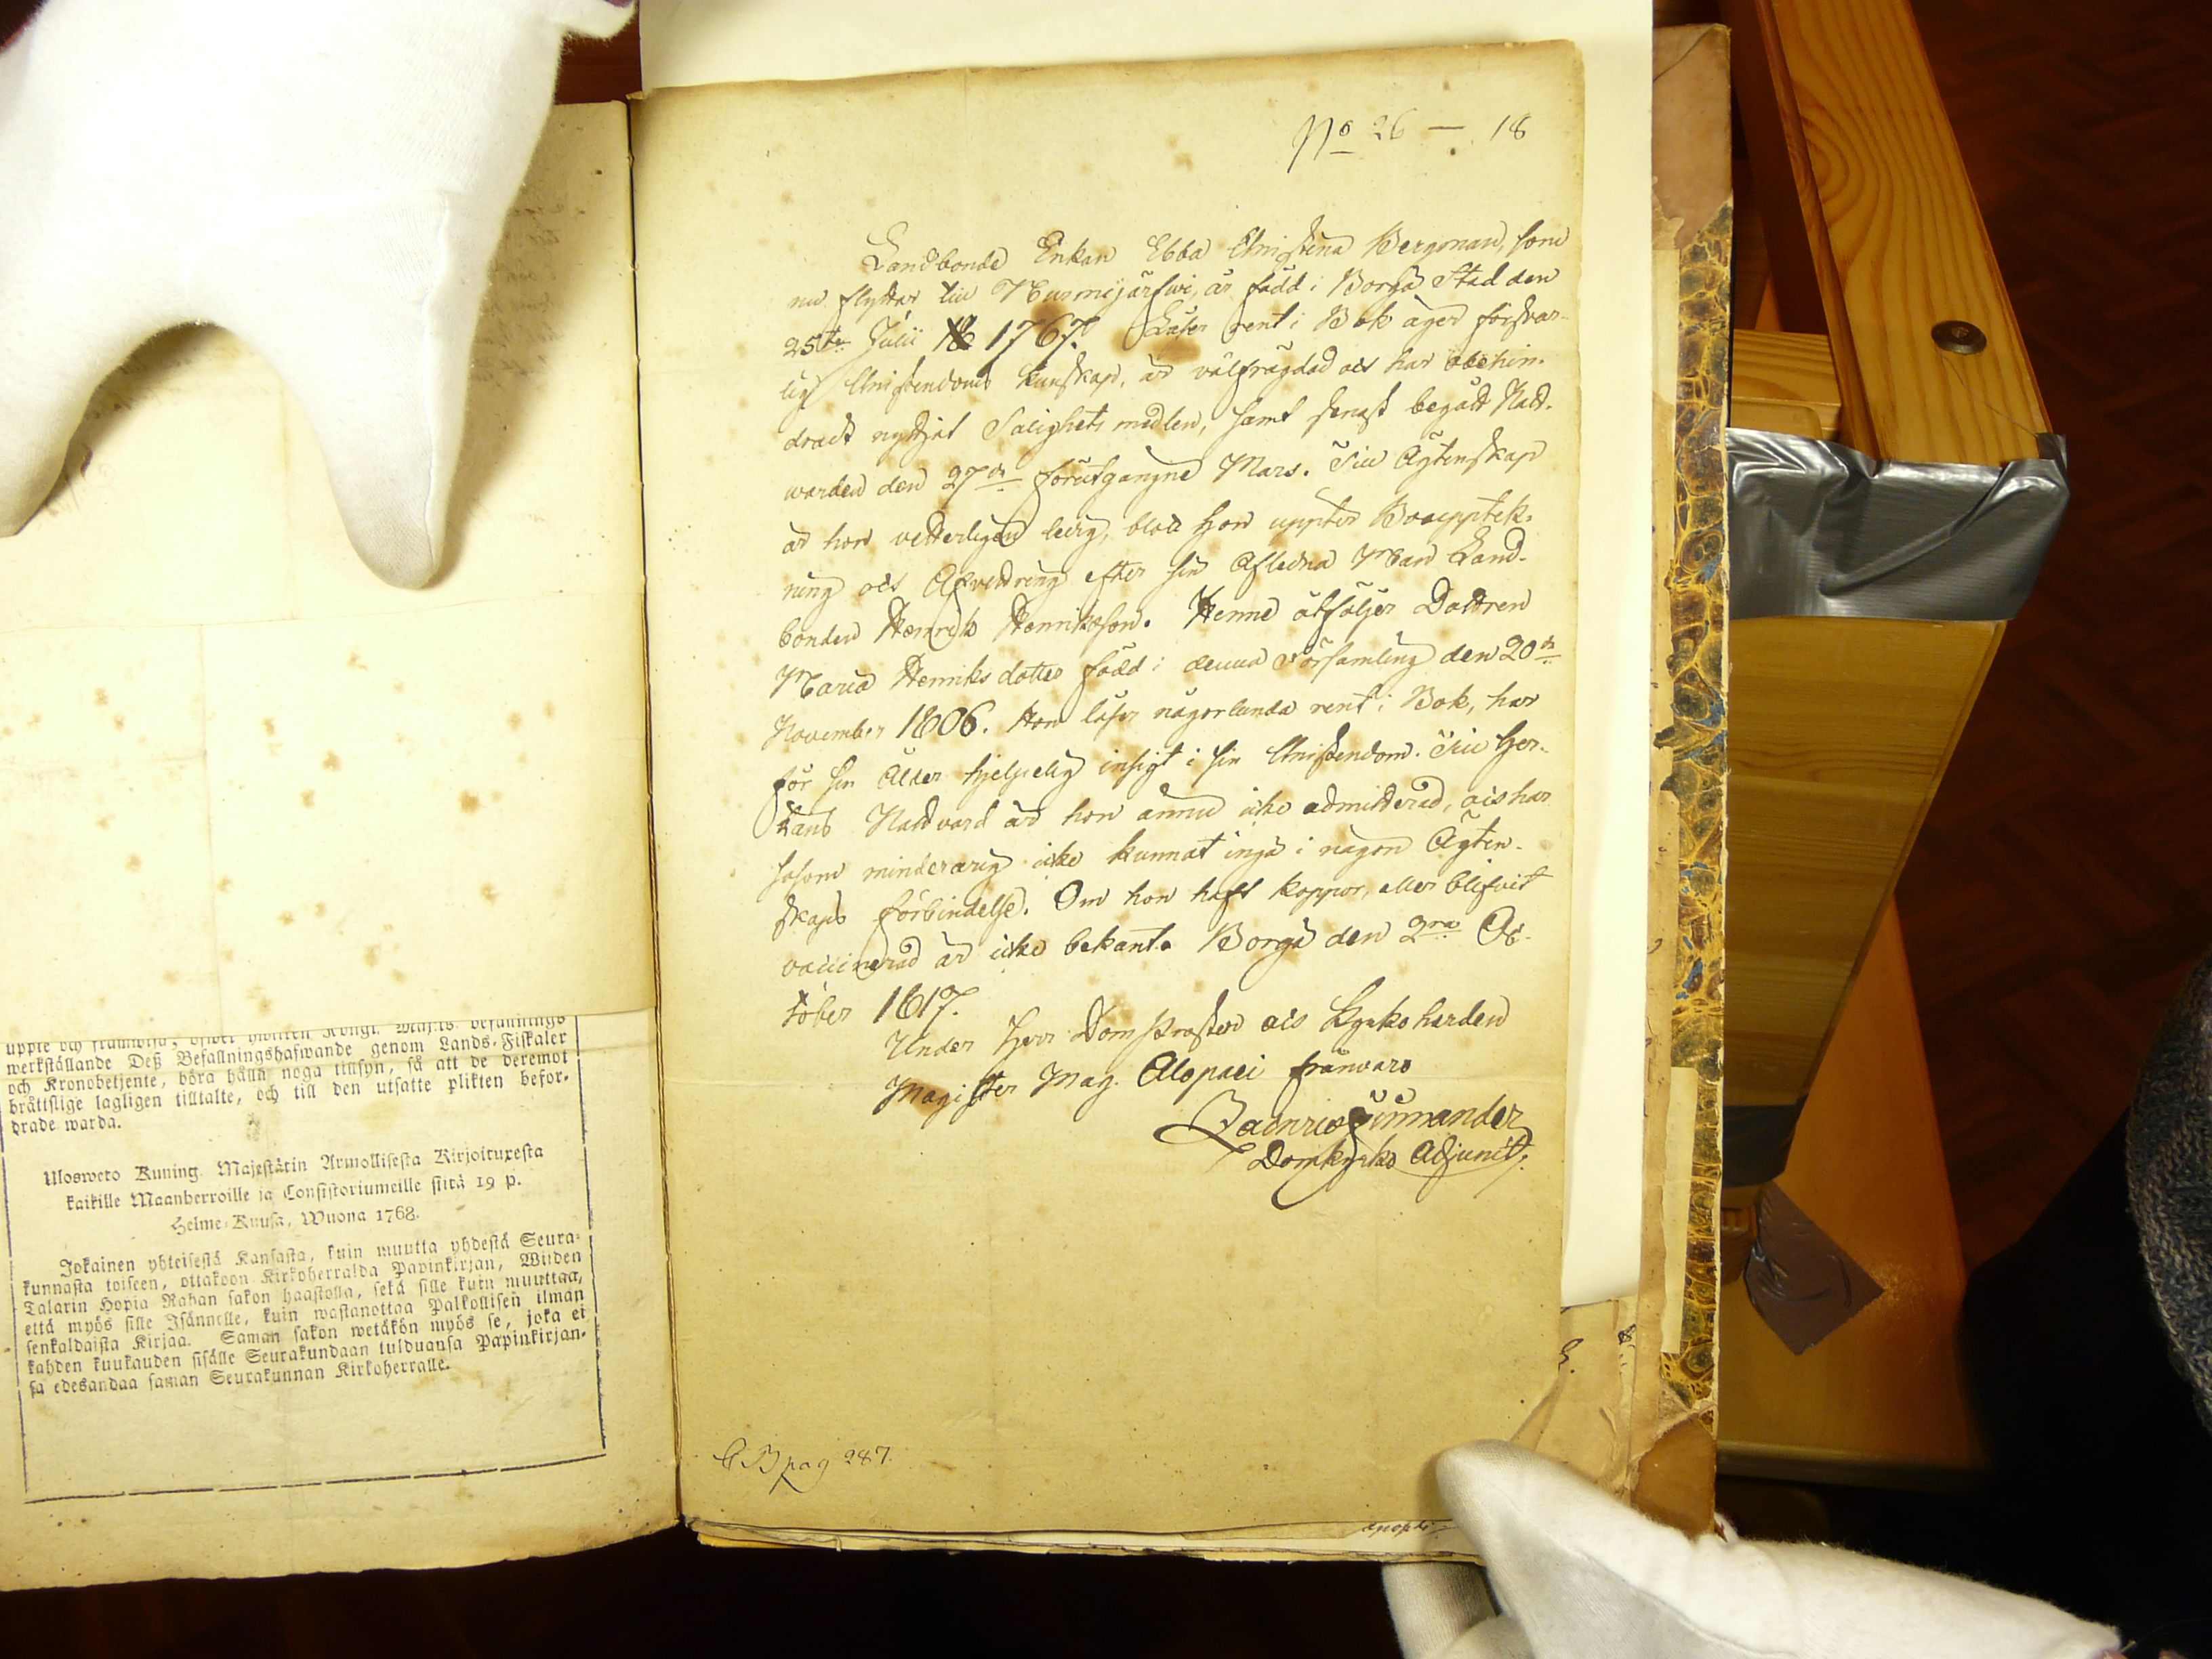 uppte och framwisa, öfwer hwilken Kongl. Maj:ts Befallnings
werkställande Deß Befallningshafwande genom Lands-Fiskaler
och Kronobetjente, böra hålla noga tillsyn, så att de deremot
bråttslige lagligen tilltalte, och till den utsatte plikten befor-
drade warda.
Ulosweto Kuning. Majestätin Armollisesta Kirjoituxesta
kaikille Maanherroille ja Consistoriumeille siitä 19 p.
Helme-Kuusa, Wuona 1768.
Jokainen yhteisestä Kansasta, kuin muutta yhdestä Seura-
kunnasta toiseen, ottakoon Kirkoherralda Papinkirjan, Wiiden
Talarin Hopia Rahan sakon haastolla, sekä sille kuin muuttaa,
että myös sille Isännelle, kuin wastanottaa Palkollisen ilman
senkaldaista Kirjaa. Saman sakon wetäkön myös se, joka ei
kahden kuukauden sisälle Seurakundaan tulduansa Papinkirjan-
sa edesandaa saman Seurakunnan Kirkoherralle.
No 26 — 18
Landbonde Enkan Ebba Christina Bergman, som
nu flyttar till Nurmijärfwi, är född i Borgå Stad den
25te Julii 1767. Läser rent i Bok äger försvar-
lig Christendoms kunskap, är välfrägdad och har obehin-
dradt nyttjat Salighets medlen, samt senast begått Natt-
warden den 27de förutgangne Mars. Till Ägtenskap
är hon vetterligen ledig, blott hon uppter Bouppteck-
ning och Afvittring efter sin Aflidna Man Land-
bonden Henrik Henriksson. Henne åtföljer Dottren
Maria Henriksdotter född i denna Församling den 20de
November 1806. Hon läser någorlunda rent i Bok, har
för sin Ålder hjelpelig insigt i sin Christendom. Till Her-
rans Nattvard är hon ännu icke admitterad, och har
såsom minderårig icke kunnat ingå i någon Ägten-
skaps förbindelse. Om hon haft koppor, eller blifvit
vaccinerad är icke bekant. Borgå den 2ra Oc-
tober 1817.
Under Herr DomProsten och Kyrkoherden
Magister Mag. Alopaei frånvaro
Domkyrko Adjunct.
C B pag 287.